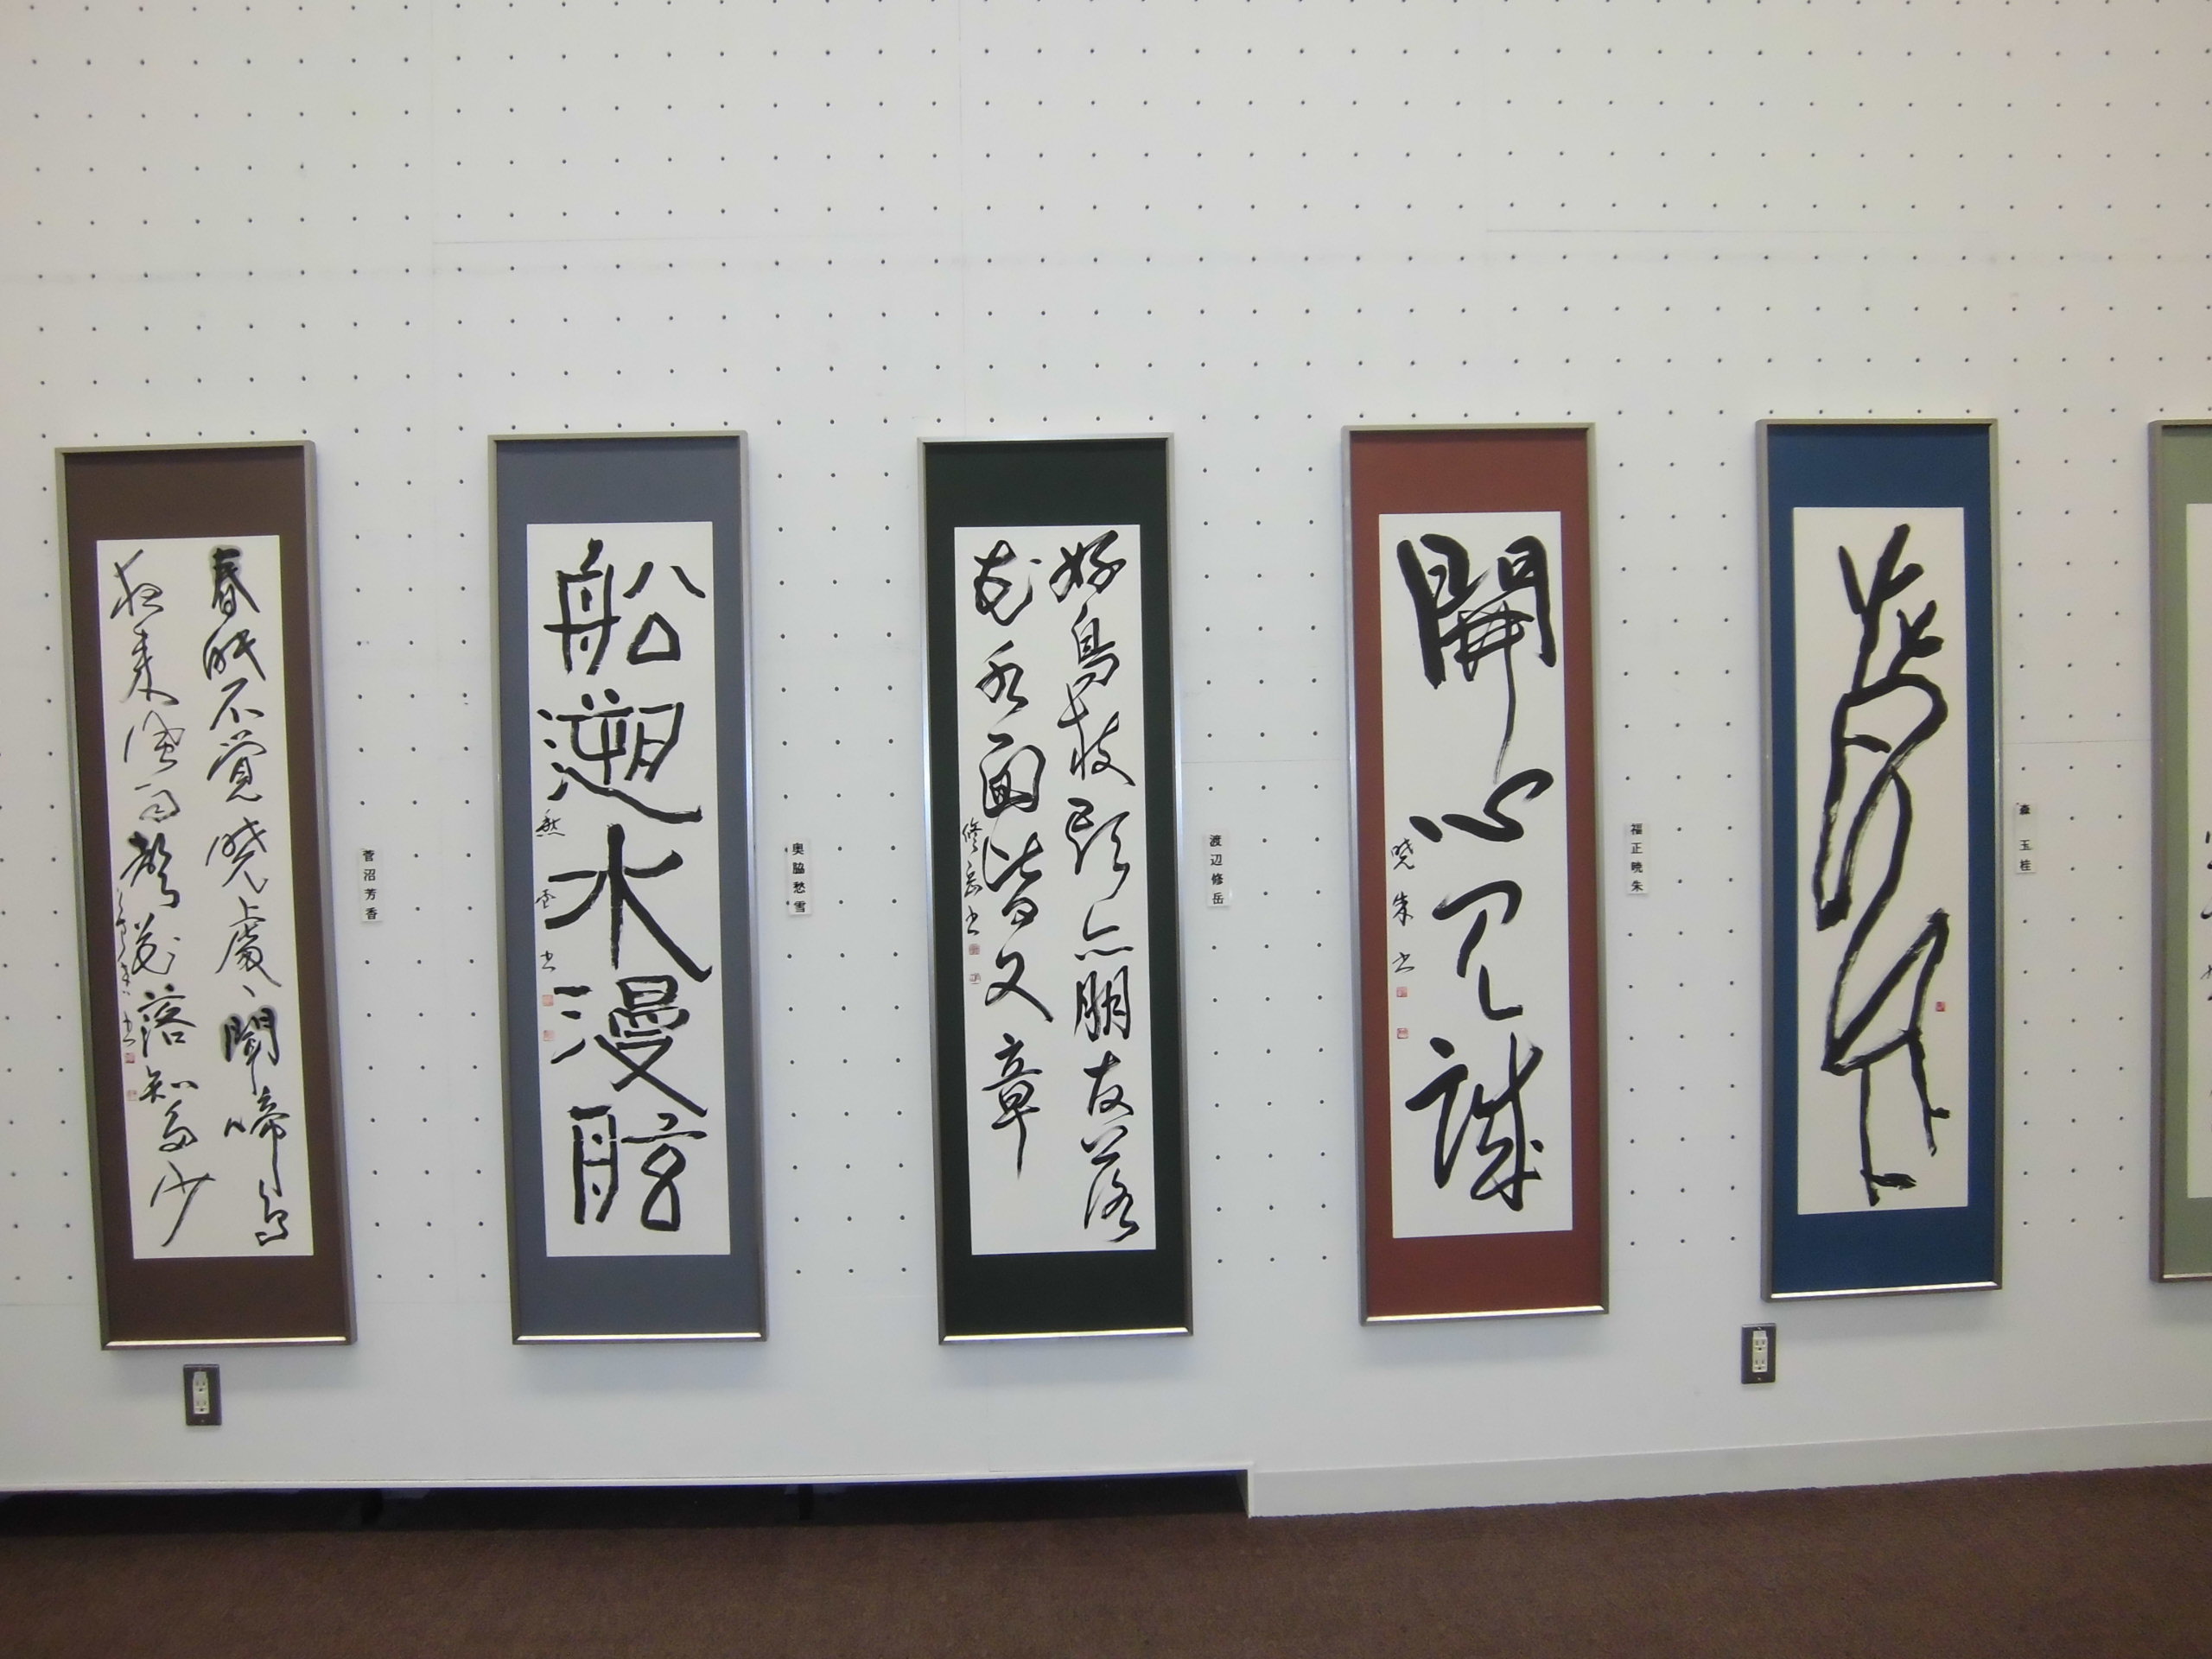 春眠不覚暁處々聞啼鳥
夜来風雨聲花落知多少
芳香書
菅沼芳香
船遡水漫舷
愁雪書
奥脇愁雪
好鳥枝頭亦朋友落
花水面皆文章
修岳書
渡辺修岳
開心見誠
暁朱書
福正暁朱
森玉桂